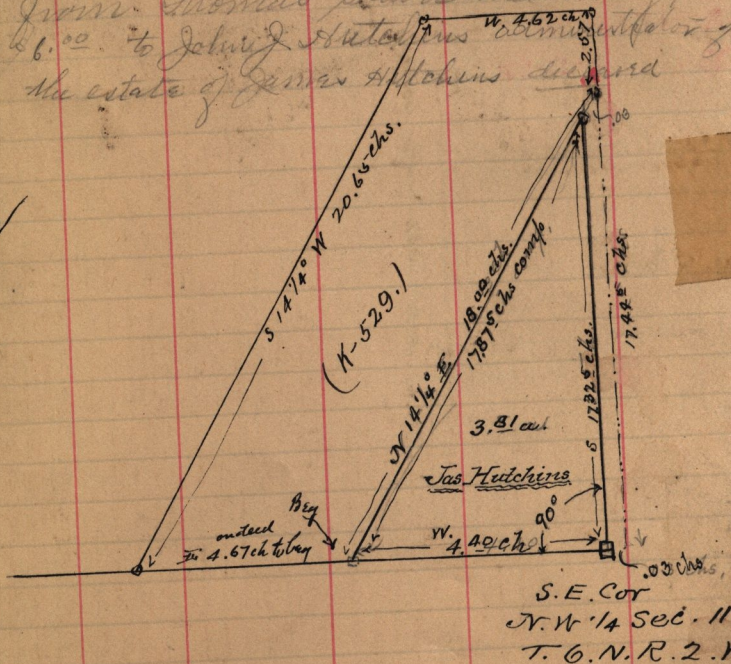 from Thomas
$6.00 to John J Hutchins administrator of
the estate of James Hutchins deceased
W. 4.62 ch
2.07
.08
S 14 1/4° W 20.65 chs.
(K-529.)
18.00 chs.
N 14 1/4° E
17.87⁵ chs comp.
S 17.32⁵ chs.
17.44⁵ chs
3.81 ac
Jas Hutchins
90°
Beg
E 4.67 ch to beg
W. 4.40 chs
.03 chs
S.E. Cor
N.W. 1/4 Sec. 11
T. 6. N. R. 2. W